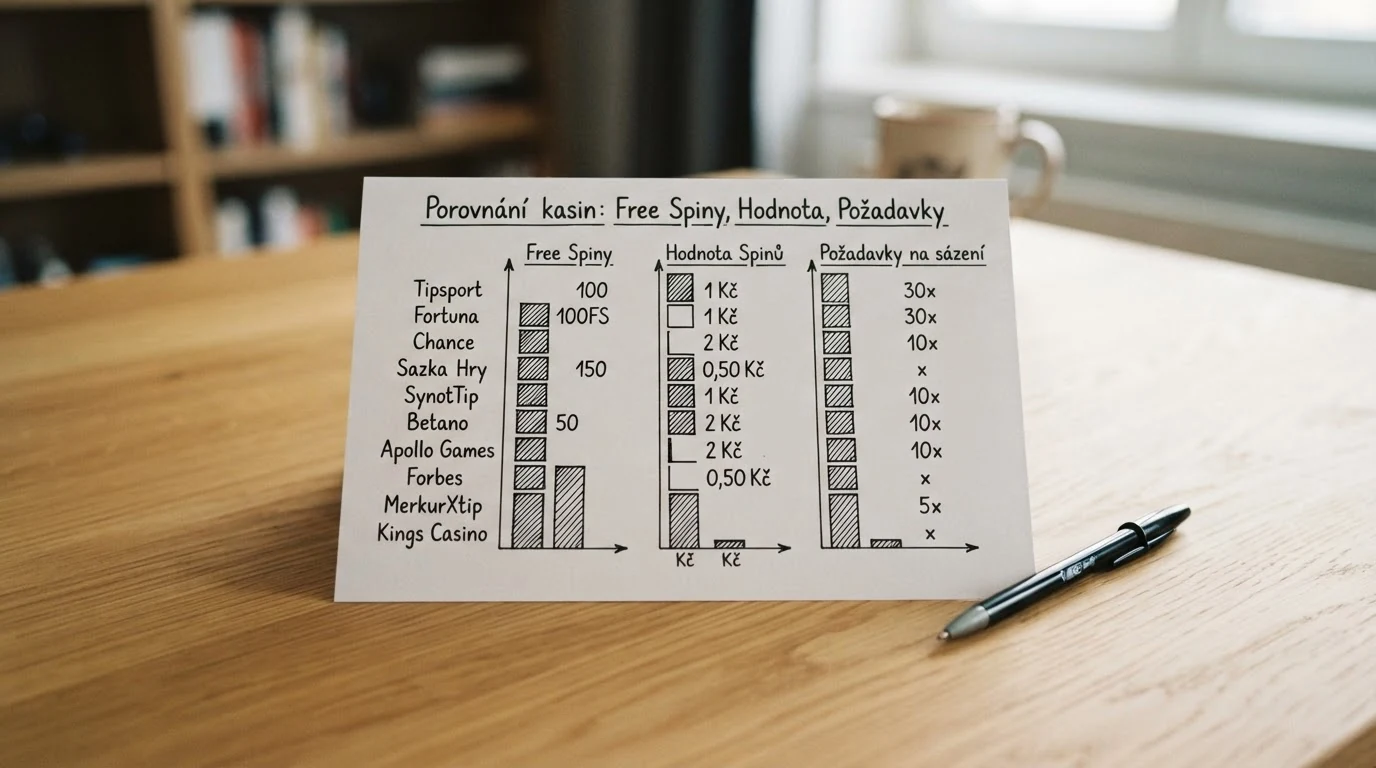 Porovnání kasin: Free Spiny, Hodnota, Požadavky
Free Spiny Hodnota Spinů Požadavky na sázení
Tipsport 100 1 Kč 30x
Fortuna 100FS 1 Kč 30x
Chance 2 Kč 10x
Sazka Hry 150 0,50 Kč x
SynotTip 1 Kč 10x
Betano 50 2 Kč 10x
Apollo Games 2 Kč 10x
Forbes 0,50 Kč x
MerkurXtip 5x
Kings Casino x
Kč Kč